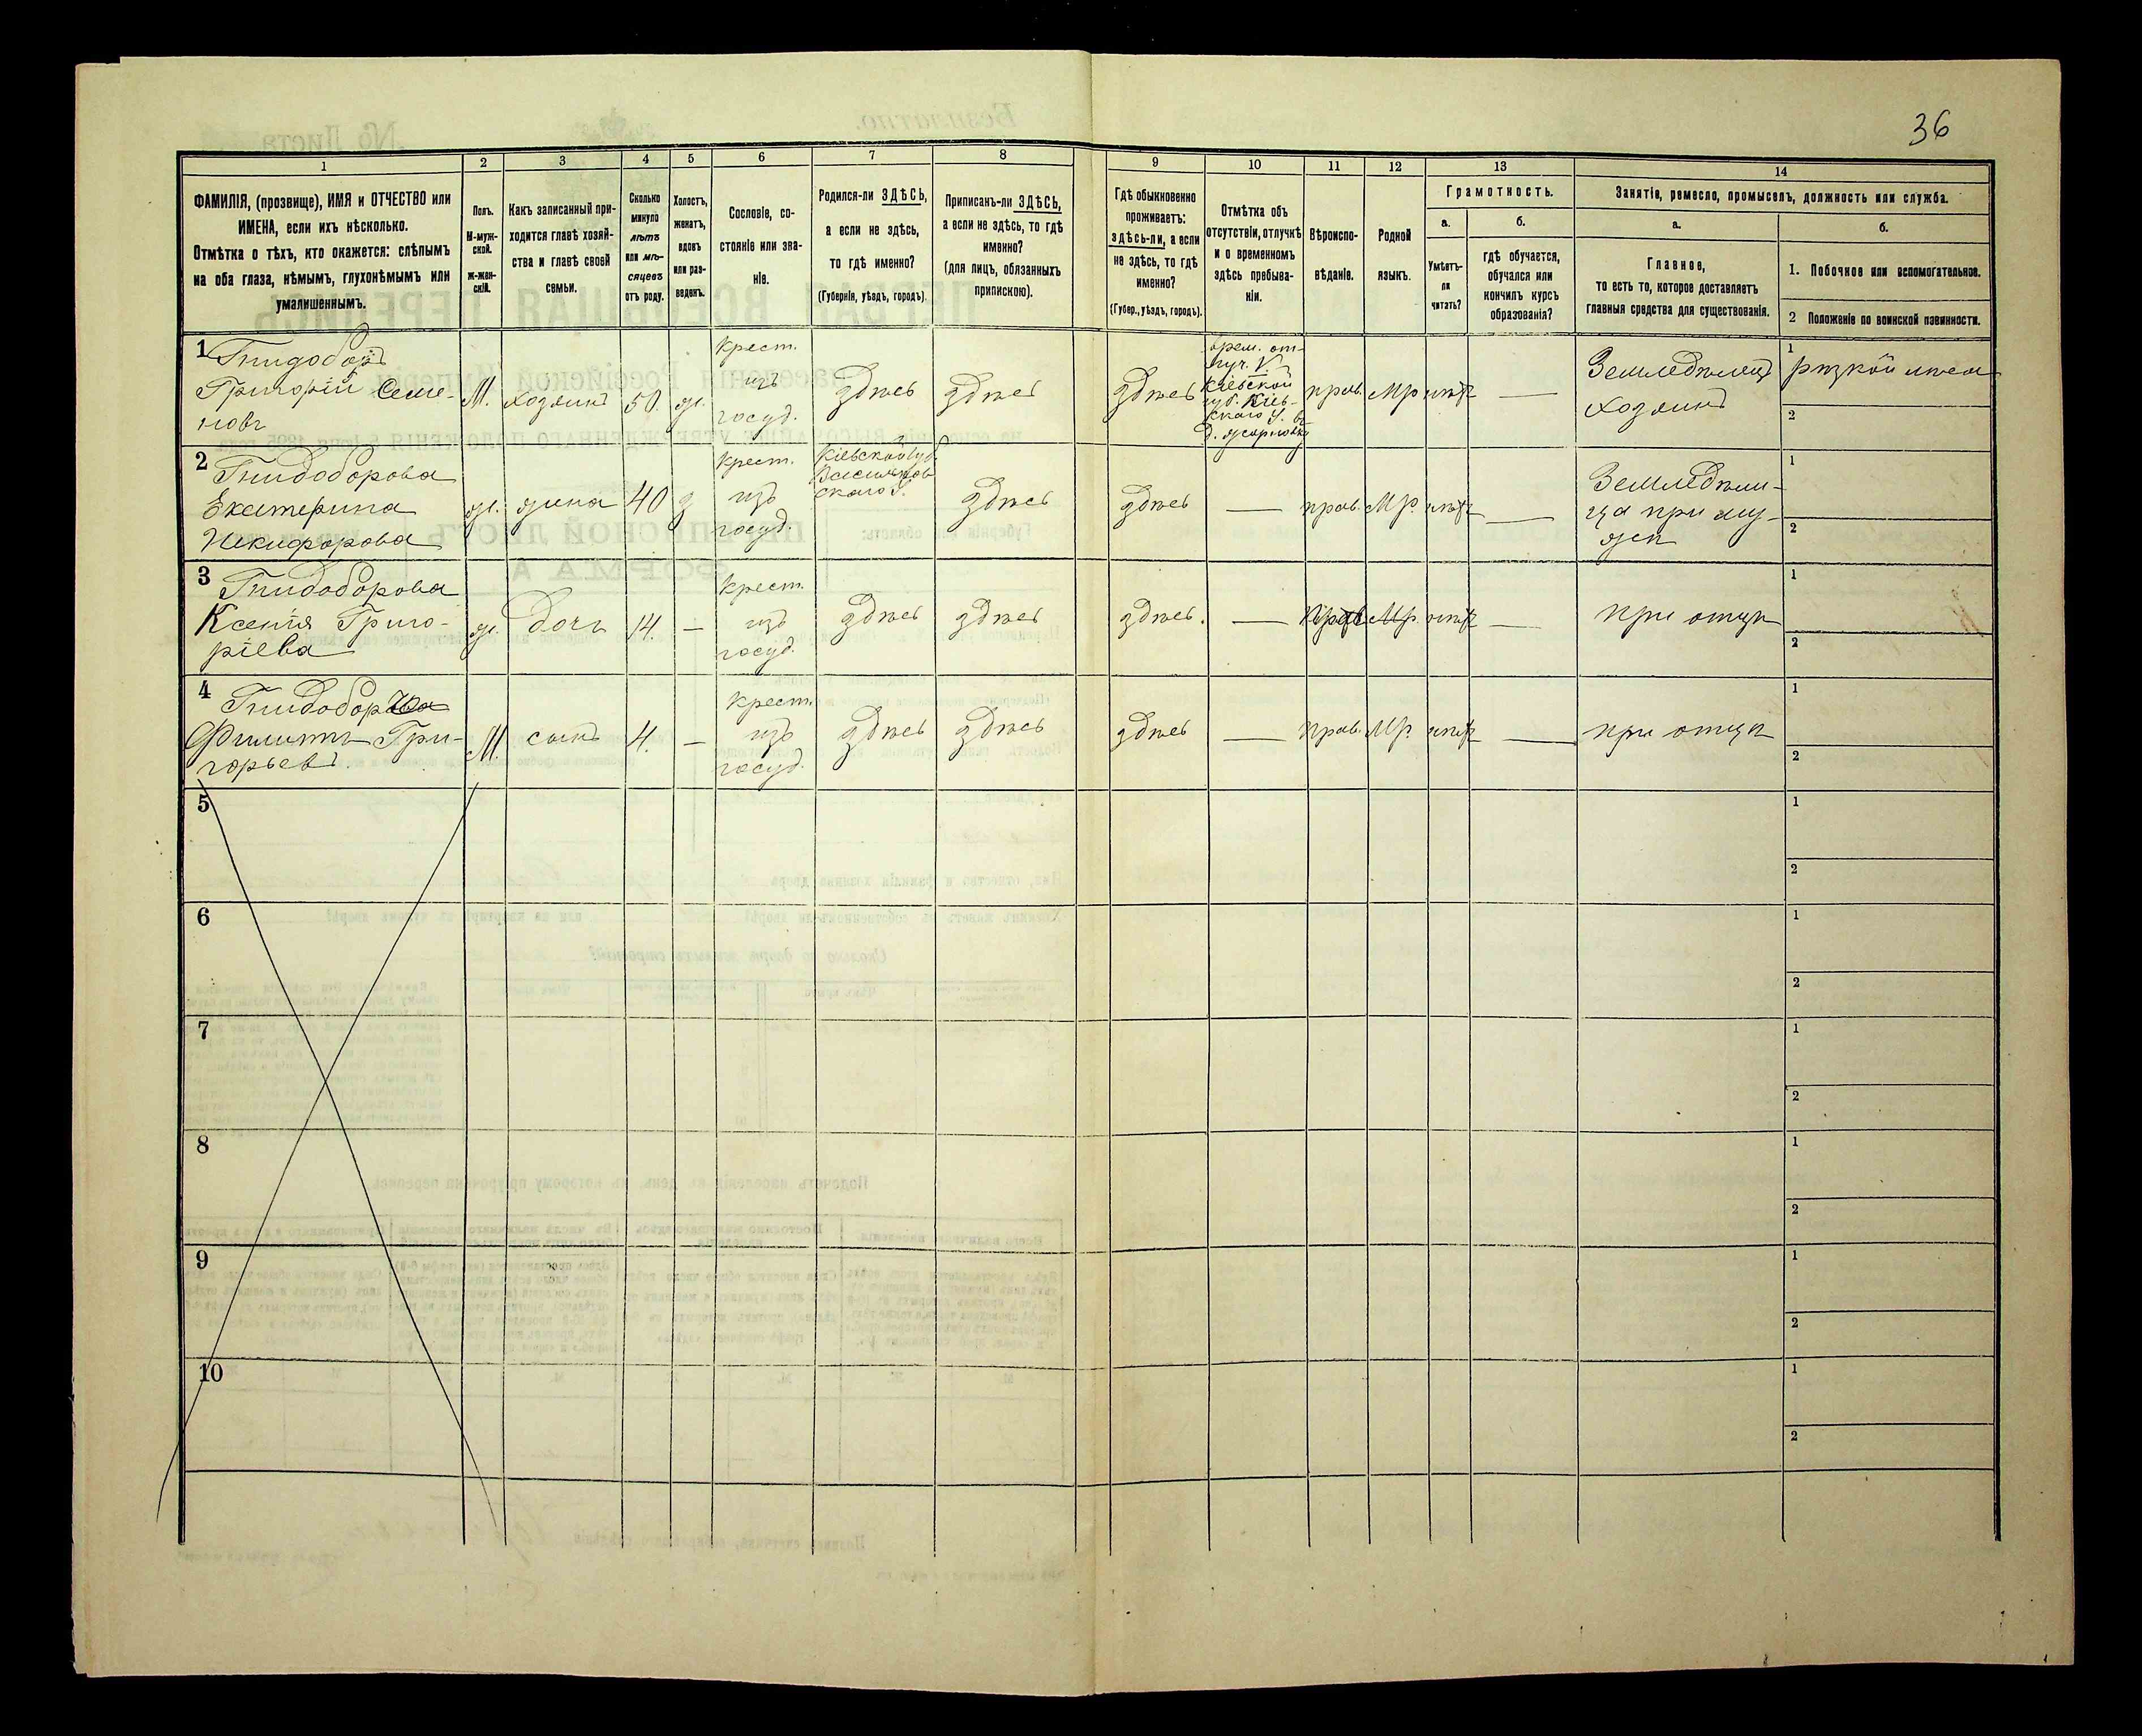 36
1
2
3
4
5
6
7
8
9
10
11
12
13
14
ФАМИЛІЯ, (прозвище), ИМЯ и ОТЧЕСТВО или
ИМЕНА, если ихъ нѣсколько.
Отмѣтка о тѣхъ, кто окажется: слѣпымъ
на оба глаза, нѣмымъ, глухонѣмымъ или
умалишеннымъ.
Полъ.
М-муж-
ской.
ж-жен-
скій.
Какъ записанный при-
ходится главѣ хозяй-
ства и главѣ своей
семьи.
Сколько
минуло
лѣтъ
или мѣ-
сяцевъ
отъ роду.
Холостъ,
женатъ,
вдовъ
или раз-
веденъ.
Сословіе, со-
стояніе или зва-
ніе.
Родился-ли ЗДѢСЬ,
а если не здѣсь,
то гдѣ именно?
(Губернія, уѣздъ, городъ).
Приписанъ-ли ЗДѢСЬ,
а если не здѣсь, то гдѣ
именно?
(для лицъ, обязанныхъ
припискою).
Гдѣ обыкновенно
проживаетъ:
здѣсь-ли, а если
не здѣсь, то гдѣ
именно?
(Губер., уѣздъ, городъ).
Отмѣтка объ
отсутствіи, отлучкѣ
и о временномъ
здѣсь пребыва-
ніи.
Вѣроиспо-
вѣданіе.
Родной
языкъ.
Грамотность.
а.
Умѣетъ-
ли
читать?
б.
гдѣ обучается,
обучался или
кончилъ курсъ
образованія?
Занятіе, ремесло, промыселъ, должность или служба.
а.
Главное,
то есть то, которое доставляетъ
главныя средства для существованія.
б.
1. Побочное или вспомогательное.
2 Положеніе по воинской повинности.
1 Гнидоборъ
Григорій Семе-
новъ
М.
Хозяинъ
50.
ж.
крест.
изъ
госуд.
здѣсь
здѣсь
здѣсь
врем. от-
луч. V.
Кіевской
губ. Кіев-
скаго У. въ
прав.
Мр
нѣт
—
Земледѣлецъ
Хозяинъ
1
2
2 Гнидоборова
Екатерина
Никифорова
ж.
жена
40
з
крест.
изъ
госуд.
Кіевской Губ.
Васильков-
скаго У.
здѣсь
здѣсь
—
прав.
Мр
нѣт
—
Земледѣли-
ца при му-
жѣ
1
2
3 Гнидоборова
Ксенія Григо-
ріева
ж.
Дочь
14.
—
крест.
изъ
госуд.
здѣсь
здѣсь
здѣсь.
—
Прав
Мр.
нѣт
—
при отцѣ
1
2
4 Гнидобор
Филиппъ Гри-
горьевъ.
М.
сынъ
4.
—
крест.
изъ
госуд.
здѣсь
здѣсь
здѣсь
—
прав.
Мр.
нѣт
—
при отцѣ
1
2
5
1
2
6
1
2
7
1
2
8
1
2
9
1
2
10
1
2